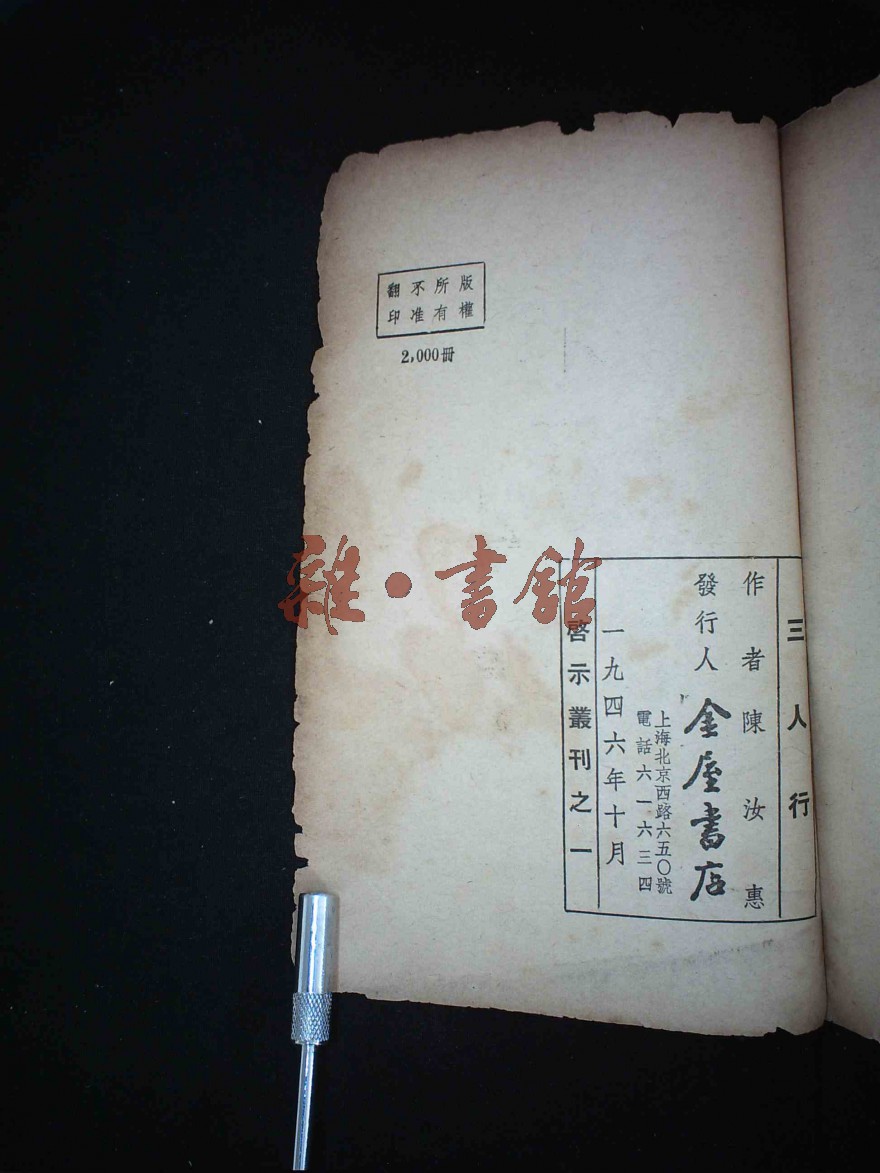 版權
所有
不准
翻印
2,000冊
三人行
作者 陳汝惠
發行人 金屋書店
上海北京西路六五〇號
電話六一六三四
一九四六年十月
啓示叢刊之一
雜·書館